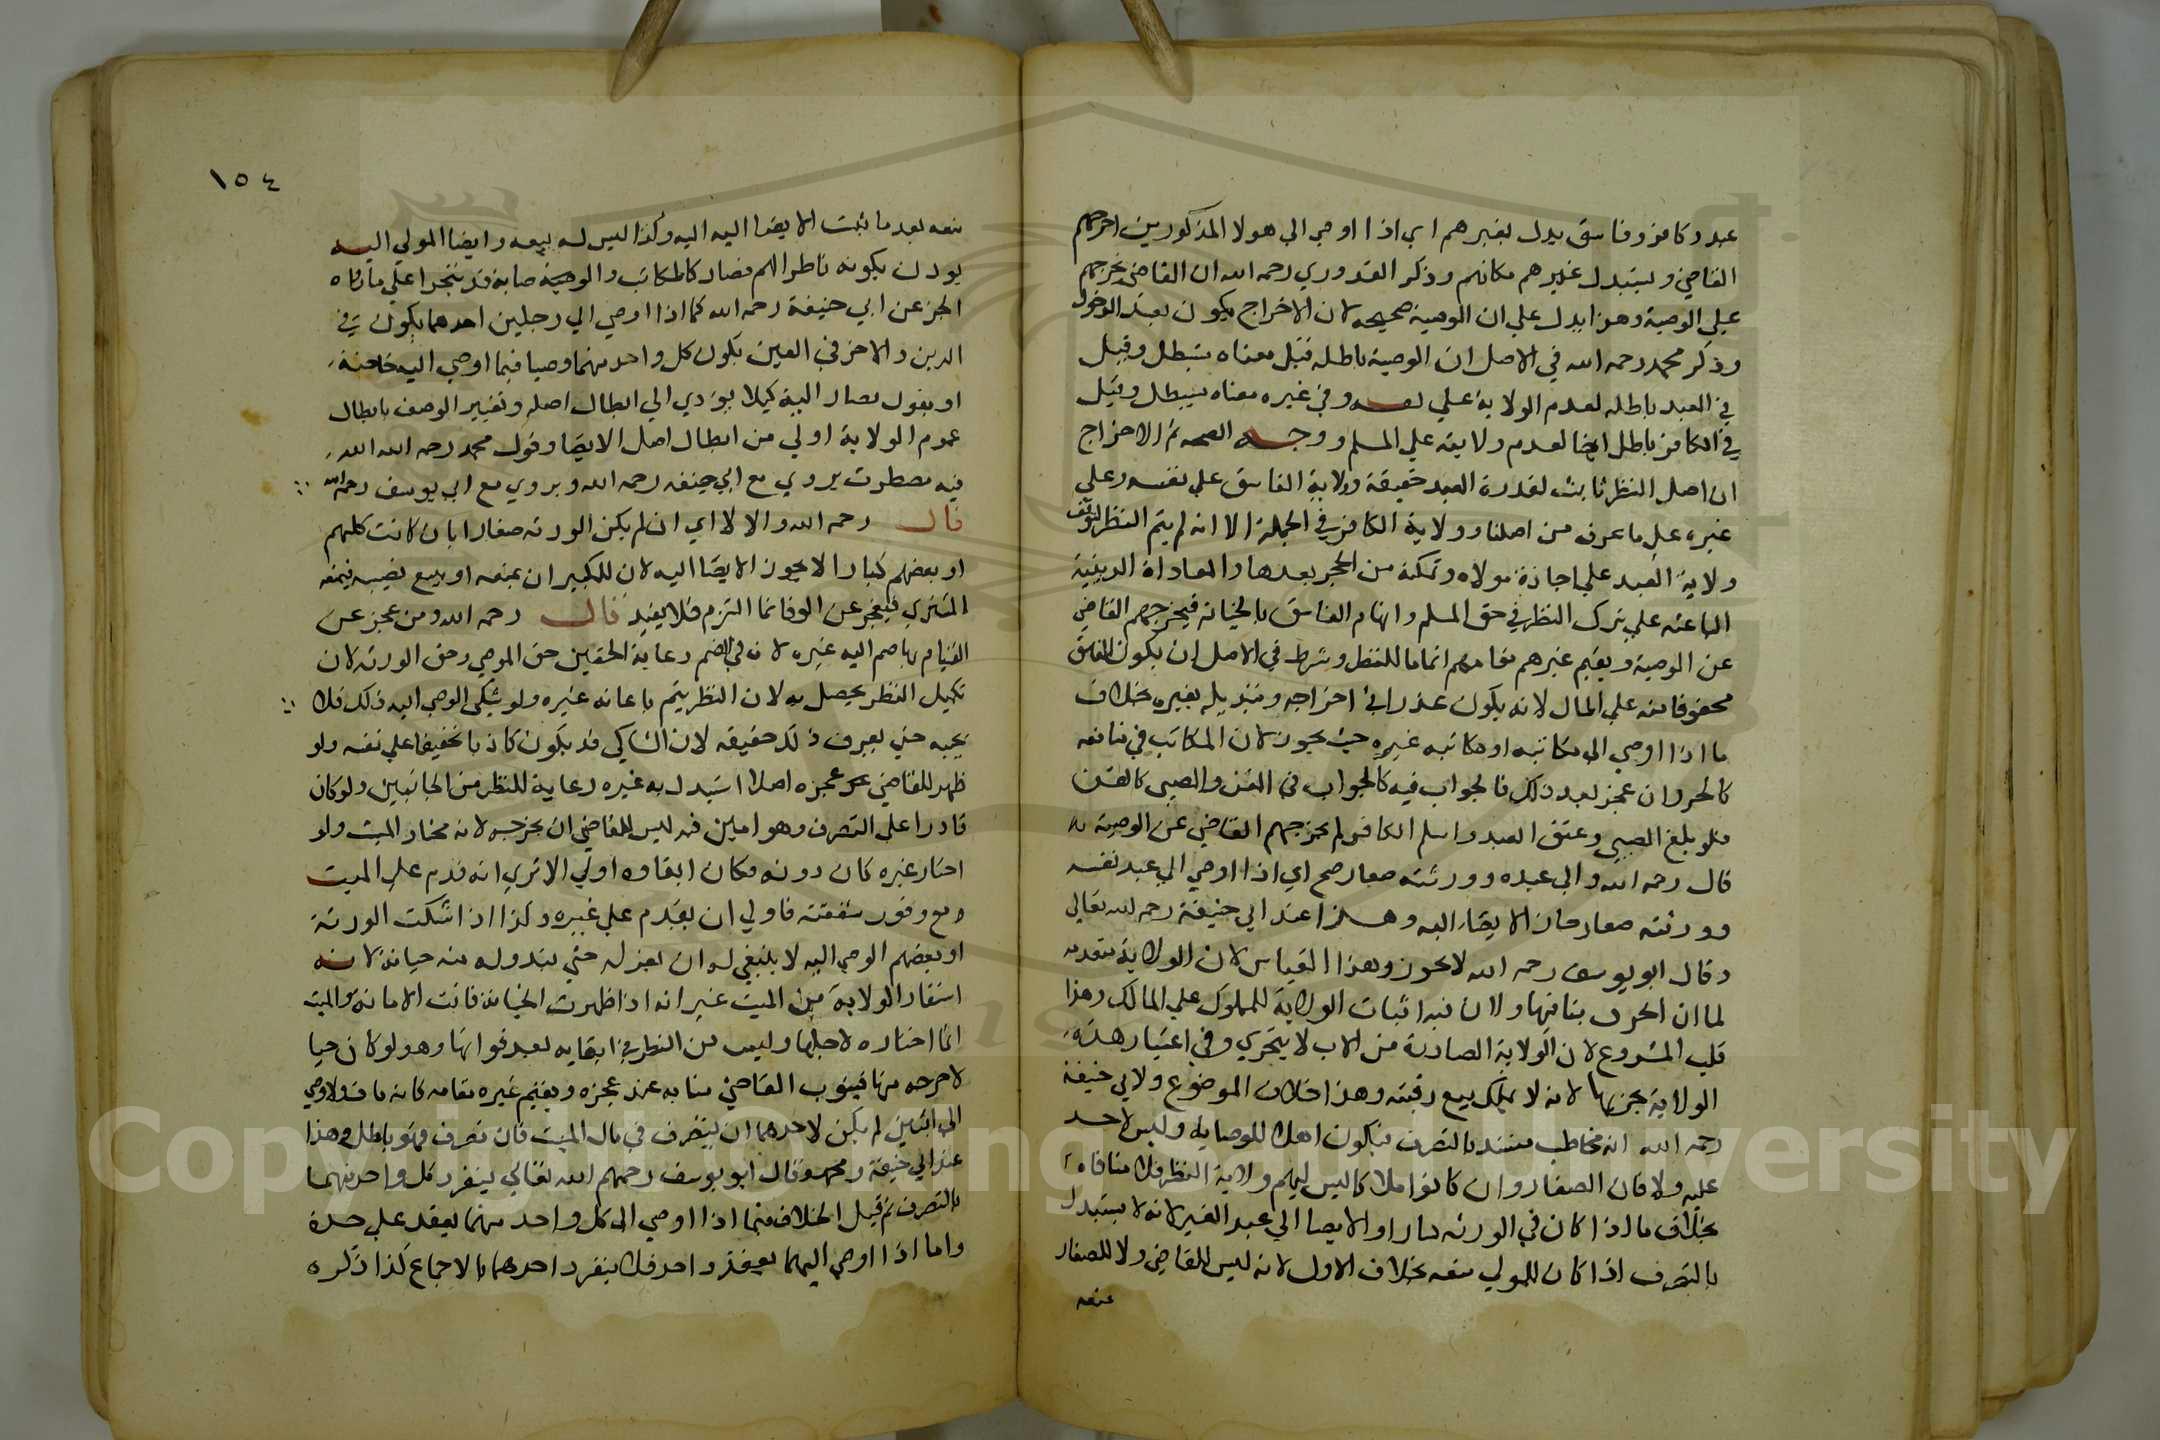 عبد وكافر وفاسق بدل بغيرهم اي اذا اوصي الي هولا المذكورين اخرجهم
القاضي ويستبدل غيرهم مكانهم وذكر القدوري رحمه الله ان القاضي يخرجهم
علي الوصية وهذا يدل علي ان الوصية صحيحه لان الاخراج يكون بعد الدخول
وذكر محمد رحمه الله في الاصل ان الوصية باطله فقيل معناه ستبطل وقيل
في العبد باطله لعدم الولاية علي نفسه وفي غيره معناه سيبطل وقيل
في الكافر باطل ايضا لعدم ولايته علي المسلم ووجه الصحه ثم الاخراج
ان اصل النظر ثابت لقدرة العبد حقيقة وولاية الفاسق علي نفسه وعلي
غيره علي ما عرف من اصلنا وولاية الكافر في الجملة الا انه لم يتم النظر لتوقف
ولاية العبد علي اجازة مولاه وتمكنه من الحجر بعدها والمعاداة الدينية
الباعثه علي ترك النظر في حق المسلم واتهام الفاسق بالخيانه فيخرجهم القاضي
عن الوصية ويقيم غيرهم مقامهم اتماما للنظر وشرط في الاصل ان يكون الفاسق
مخوفا منه علي المال لانه يكون عذرا في اخراجه وتبديله بغيره بخلاف
ما اذا اوصي الي مكاتبه او مكاتب غيره حيث يجوز لان المكاتب في منافعه
كالحر وان عجز بعد ذلك فالجواب فيه كالجواب في القن والصبي كالقن
فلو بلغ الصبي وعتق العبد واسلم الكافر لم يخرجهم القاضي عن الوصية
قال رحمه الله والي عبده وورثته صغار صح اي اذا اوصي الي عبد نفسه
وورثته صغار جاز الايصاء اليه وهذا عند ابي حنيفة رحمه الله تعالي
وقال ابو يوسف رحمه الله لا يجوز وهذا القياس لان الولاية منعدمه
لما ان الرق ينافيها ولان فيه اثبات الولاية للمملوك علي المالك وهذا
قلب المشروع لان الولاية الصادرة من الاب لا يتجزي وفي اعتبار هذه
الولاية تجزيها لانه لا يملك بيع رقبته وهذا خلاف الموضوع ولابي حنيفة
رحمه الله انه مخاطب مستبد بالتصرف فيكون اهلا للوصايه وليس لاحد
عليه ولا فان الصغار وان كانوا ملاكا ليس لهم ولاية النظر فلا منافاة
بخلاف ما اذا كان في الورثه كبار او الايصا الي عبد الغير لانه لا يستبدل
بالتصرف اذا كان للمولي منعه بخلاف الاول لانه ليس للقاضي ولا للصغار
منعه
١٥٤
منعه بعد ما ثبت الايصا اليه اليه وكذا ليس له بيعه وايضا المولي اليه
يوذن بكونه ناظرا لهم فصار كالمكاتب والوصية صابه قد تتجزا علي ما رواه
الحز عن ابي حنيفة رحمه الله كما اذا اوصي الي رجلين احدهما يكون في
الدين والاخر في العين يكون كل واحد منهما وصيا فيما اوصي اليه خاصة
او يقول يصار اليه كيلا يودي الي ابطال اصله وتغيير الوصف بابطال
عموم الولاية اولي من ابطال اصل الايصا وقول محمد رحمه الله الله
فيه مضطرب يروي مع ابي حنيفه رحمه الله ويروي مع ابي يوسف رحمه الله
قال رحمه الله والا لا اي ان لم يكن الورثه صغارا بان كانت كلهم
او بعضهم كبارا لا يجوز الايصا اليه لان للكبير ان يمنعه او يبيع نصيبه فيمنعه
المشتري فيعجز عن الوفا بما التزم فلا يفيد قال رحمه الله ومن عجز عن
القيام بها ضم اليه غيره لان في الضم رعاية الحقين حق الموصي وحق الورثه لان
تكميل النظر يحصل به لان النظر يتم باعانه غيره ولو شكي الوصي اليه ذلك فلا
يجيبه حتي يعرف ذلك حقيقه لان الشاكي قد يكون كاذبا تخفيفا علي نفسه ولو
ظهر للقاضي عجزه اصلا استبدل به غيره رعاية للنظر من الجانبين ولو كان
قادرا علي التصرف وهو امين فيه ليس للقاضي ان يخرجه لانه مختار الميت ولو
اختار غيره كان دونه فكان ابقاوه اولي الا تري انه قدم علي الميت
مع وفور شفقته فاولي ان يقدم علي غيره وكذا اذا شكت الورثة
او بعضهم الوصي اليه لا ينبغي له ان يعزله حتي يبدو له منه خيانة لانه
استفاد الولاية من الميت غير انه اذا ظهرت الخيانة فاتت الامانة والميت
انما اختاره لاجلها وليس من النظر في ابقايه بعد فواتها وهو لو كان حيا
لاخرجه منها فينوب القاضي منابه عند عجزه ويقيم غيره مقامه كانه مات ولا وصي
الي اثنين لم يكن لاحدهما ان يتصرف في مال الميت فان تصرف فهو باطل وهذا
عند ابي حنيفة ومحمد وقال ابو يوسف رحمهم الله تعالي ينفرد كل واحد منهما
بالتصرف ثم قيل الخلاف فيما اذا اوصي الي كل واحد منهما بعقد علي حدة
واما اذا اوصي اليهما بعقد واحد فلا ينفرد احدهما بالاجماع كذا ذكره
Copyright © King Saud University